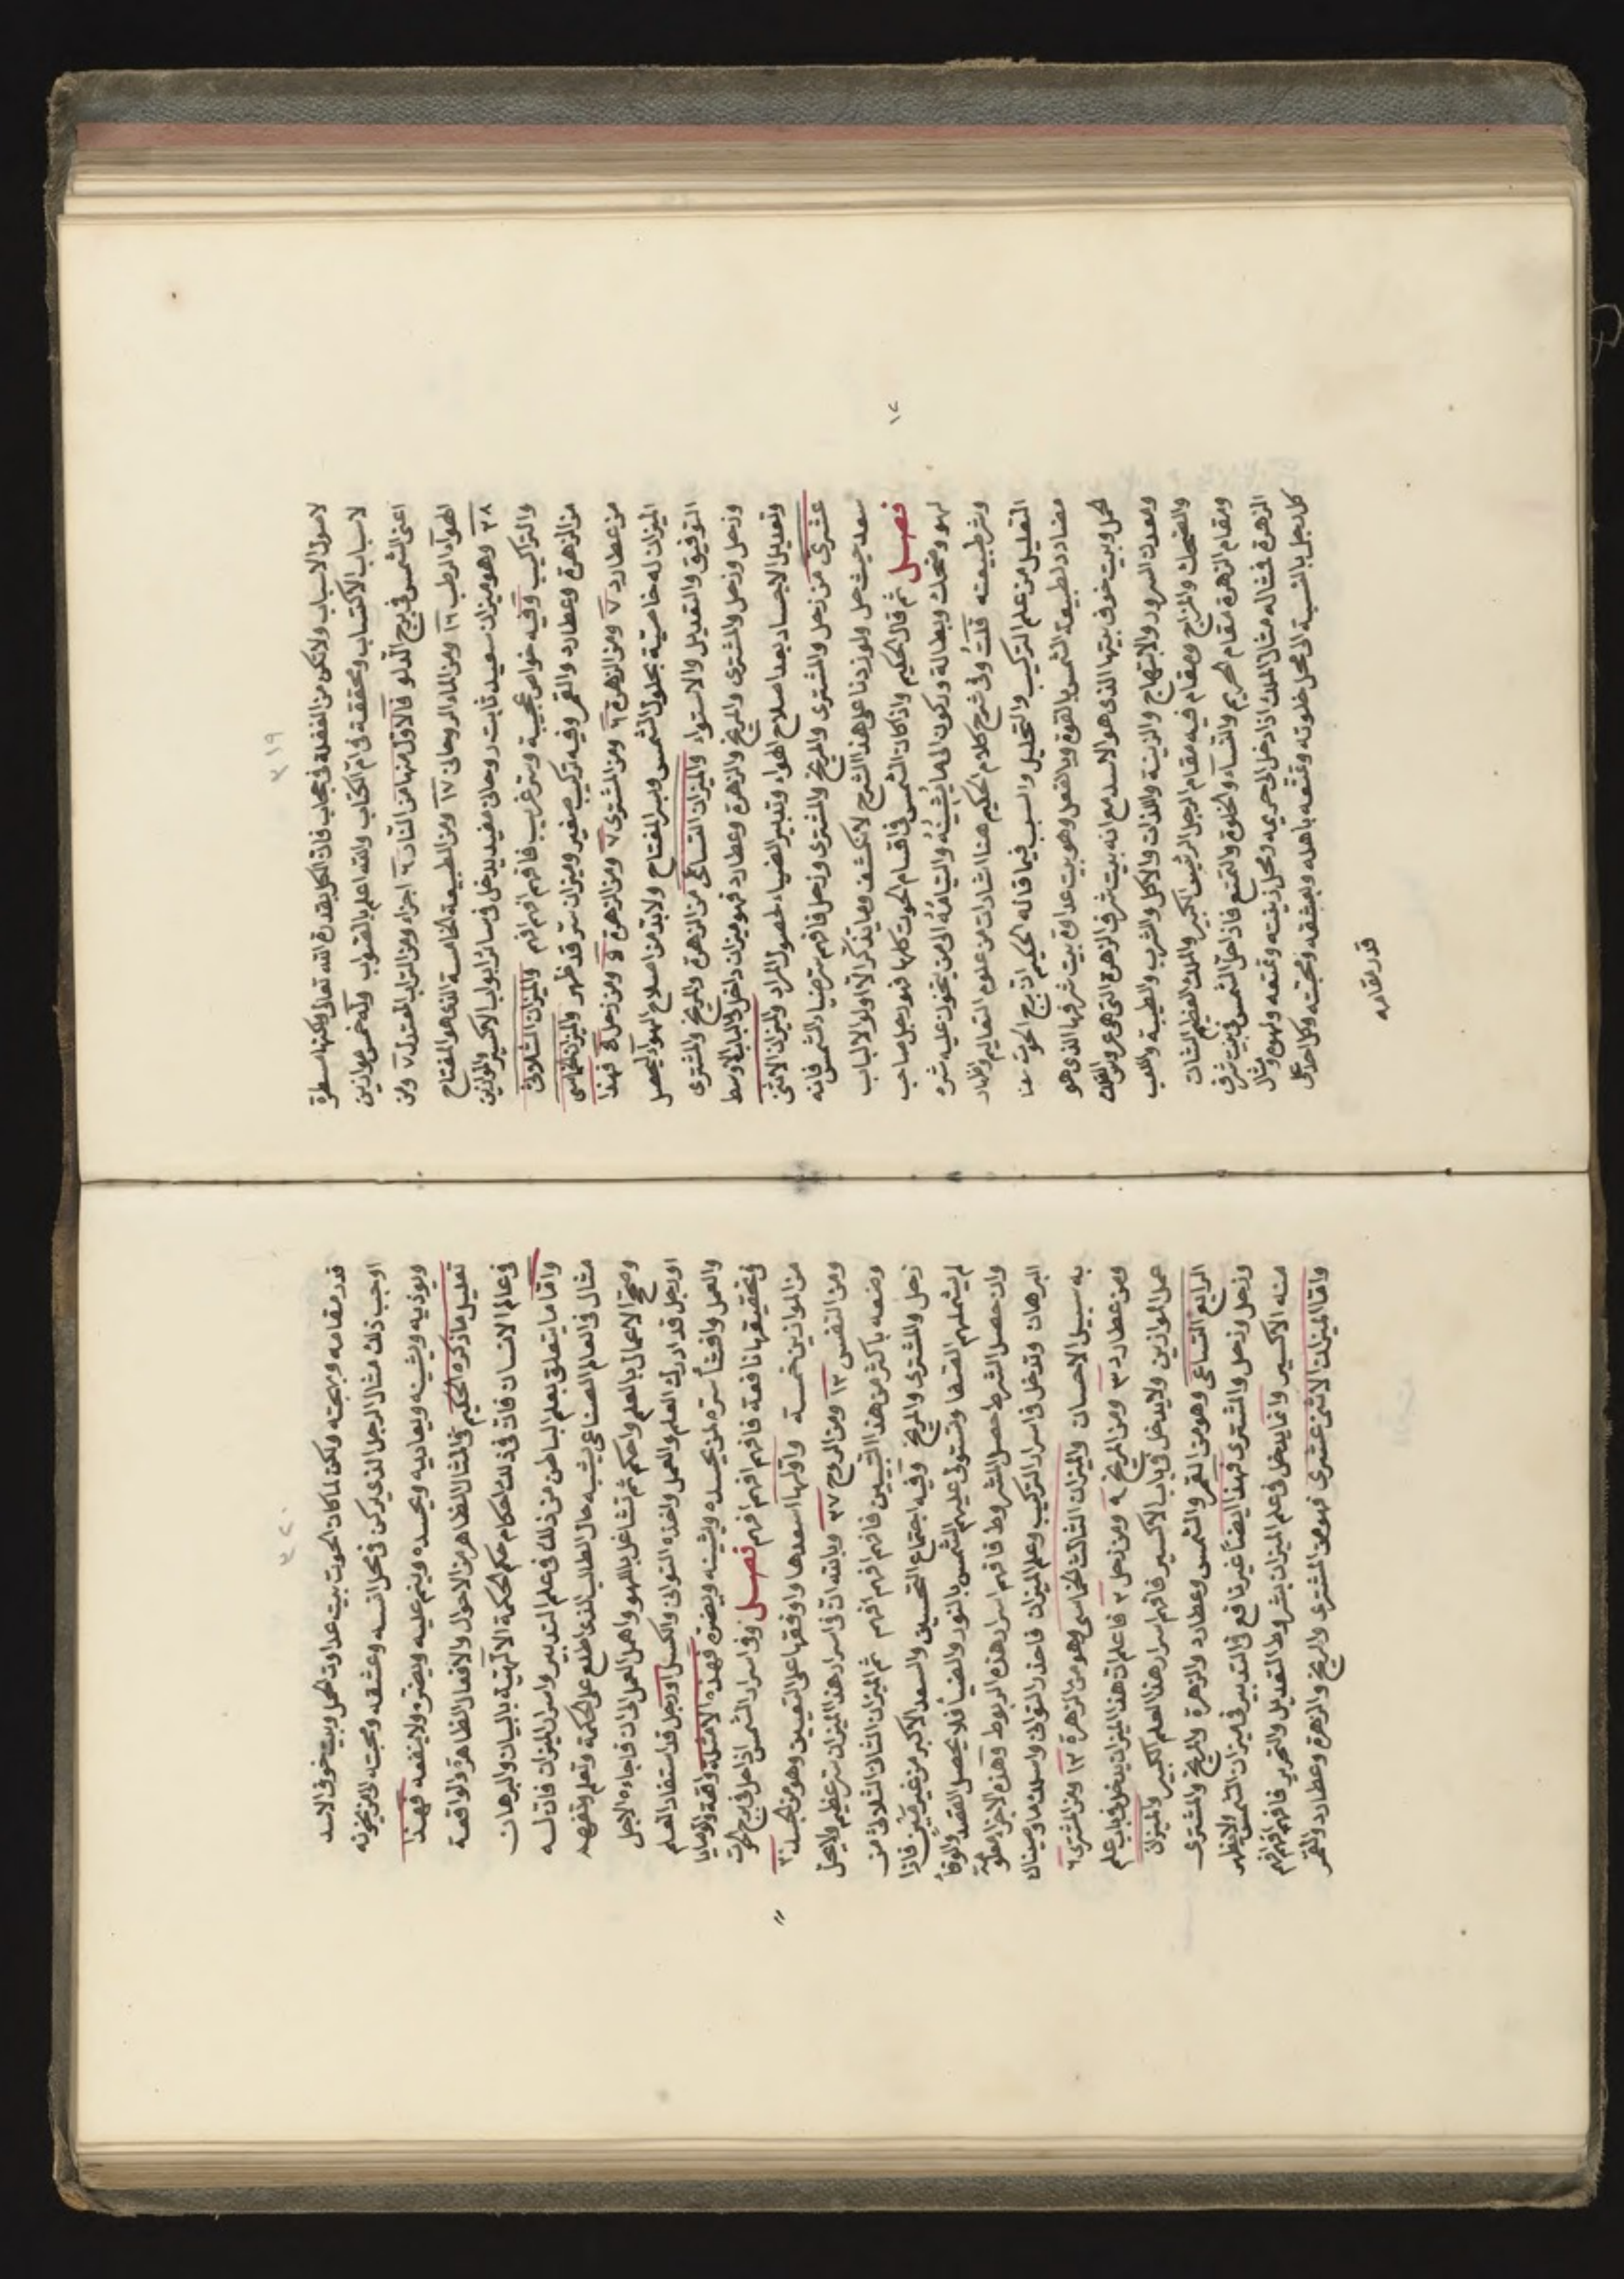 ٣١٩
لاصول الاسباب ولا تكن من الغفلة في حجاب فان الكل بقدرة الله تعالى ولكنها مسطرة
لاسباب الاكتساب ومحققة في ام الكتاب والله اعلم بالصواب وله خمس موازين
اعنى الشمس في برج الدلو فالاول منها من النار ٦ اجزاء ومن التراب المعتدل ٧ ومن
الهواء الرطب ١٦ ومن الماء الروحاني ١٧ ومن الطبيعة الخامسة الذي هو المفتاح
٣٨ وهو ميزان سعيد ثابت روحاني مفيد يدخل في سائر ابواب الاكسير والموازين
والتراكيب وفيه خواص عجيبة وسر غريب فافهم افهم افهم والميزان الثلاثى
من الزهرة وعطارد والقمر وفيه تركيب صغير وميزان سر قد ظهر والميزان الخماسى
من عطارد ٧ ومن الزهرة ٦ ومن المشترى ٧ ومن الزهرة ٥ ومن زحل ٥ فهذا
الميزان له خاصية بحلول الشمس وبسر المفتاح ولابد من اصلاح الهواء ليحصل
التوفيق والتعديل والاستواء والميزان التساعى من الزهرة والمريخ والمشترى
وزحل وزحل والمشترى والمريخ والزهرة وعطارد فهو ميزان داخل في المبانى الاوسط
وتعديل الاجساد بعد اصلاح الهواء وتدبير الضياء لحصول المراد والميزان الاثنى
عشرى من زحل والمشترى والمريخ والمشترى وزحل فافهم سر ضياء الشمس فانه
سعد حيث حل ولو زدنا على هذا الشرح لانكشف وما يتذكر الا اولوا الالباب
فصل ثم قال الحكيم واذا كان الشمس في اقسام الحوت كلها فهو رجل صاحب
لهو وضحك وبطالة وركون الى ما يشينه والتيامه الى من يخون عليه شره
وشر طبيعته قلت وفي شرح كلام الحكيم هنا اشارات من علوم التعاليم واظهار
التعليل من علم التركيب والتحليل والسبب فيما قاله الحكيم ان برج الحوت معنا
مضادد لطبيعة الشمس بالقوة وبالفعل وهو بيت عداوة بيت شرفها الذى هو
الحمل وبيت خوف بيتها الذى هو الاسد مع انه بيت شرف الزهرة التى هى عروس الفلك
ومعدن السرور والابتهاج والزينة واللذات والاكل والشرب والطيبة واللعب
والضحك والمزاج ومقام فيه مقام الرجل الرئيس الكبير والملك العظيم الشان
ومقام الزهرة مقام الحريم والنساء والخلوة والتمتع فاذا حل الشمس في بيت شرف
الزهرة فمثاله مثال الملك اذا دخل الى حريمه ومحل زينته وتمتعه ولهوه ومثال
كل رجل بالنسبة الى محل خلوته وتمتعه باهله وبعشقه ومحبته وكل احد على
قدر مقامه
٣٢٠
قدر مقامه وبهجته ولكن لما كان الحوت بيت عداوت الحمل وبيت خوف الاسد
اوجب ذلك مثال الرجل الذى يركن في محل انسه وعشقه ومحبته الى من يخونه
ويوذيه ويشينه ويعاديه ويحسده وينم عليه ويضره ولا ينفعه فهذا
تعليل ما ذكره الحكيم في المثال الظاهر من الاحوال والافعال الظاهرة والواقعة
في عالم الانسان فان في ذلك احكام حكم الحكمة الالهية بالبيان والبرهان
واما ما يتعلق بعلم الباطن من ذلك في علم التدبير واسرار الميزان فان له
مثال في العالم الصناعى يشبه حال الطالب الذى اطلع على الحكمة وتعلم وتفهم
وصحح الاعمال بالعلم واحكم ثم تشاغل باللهو واهمل العمل الى ان فاجاءه الاجل
او رجل قد ادرك العلم والعمل واخذه التوانى والكسل او رجل قد استفاد العلم
والعمل وافشأ سره لمن يحسده ويشينه ويضره فهذه الامثلة واقعة والوصايا
في تحقيقها نافعة فافهم افهم افهم فصل وفي اسرار الشمس اذا حل في برج الحوت
من الموازين خمسة واولها اسعدها واوفقها على التعيين وهو من الجسد ٣
ومن النفس ١٣ ومن الروح ٢٧ وبالله ان في اسرار هذا الميزان سر عظيم ولا يحل
وضعه باكثر من هذا التبيين فافهم افهم افهم ثم الميزان الثانى الثلاثى من
زحل والمشترى والمريخ وفيه اجتماع النحسين والسعد الاكبر من غير مين فاذا
لم يشملهم الصفا وتستولى عليهم الشمس بالنور والضيأ فلا يحصل القصد والوفا
وان حصل الشرط حصل المشروط فافهم اسرار هذه الربوط وهذه الاجزا معلومة
البرهان وتدخل في اسرار التركيب وعلم الميزان فاحذر التوانى واسلك ما وصيناك
به سبيل الاحسان والميزان الثالث الخماسى وهو من الزهرة ١٣ ومن المشترى ٦
ومن عطارد ٣ ومن المريخ ٩ ومن زحل ٢ فاعلم ان هذا الميزان يدخل في باب علم
حمل الموازين ولا يدخل في باب الاكسير فافهم اسرار هذا العلم الكبير والميزان
الرابع التساعى وهو من القمر والشمس وعطارد والزهرة والمريخ والمشترى
وزحل وزحل والمشترى فهذا ايضاً غير نافع في التدبير في ميزان الشمس ولا يظهر
منه الاكسير وانما يدخل في علم الميزان بشروط التعديل والتحرير فافهم افهم افهم
واما الميزان الاثنى عشرى فهو من المشترى والمريخ والزهرة وعطارد والقمر